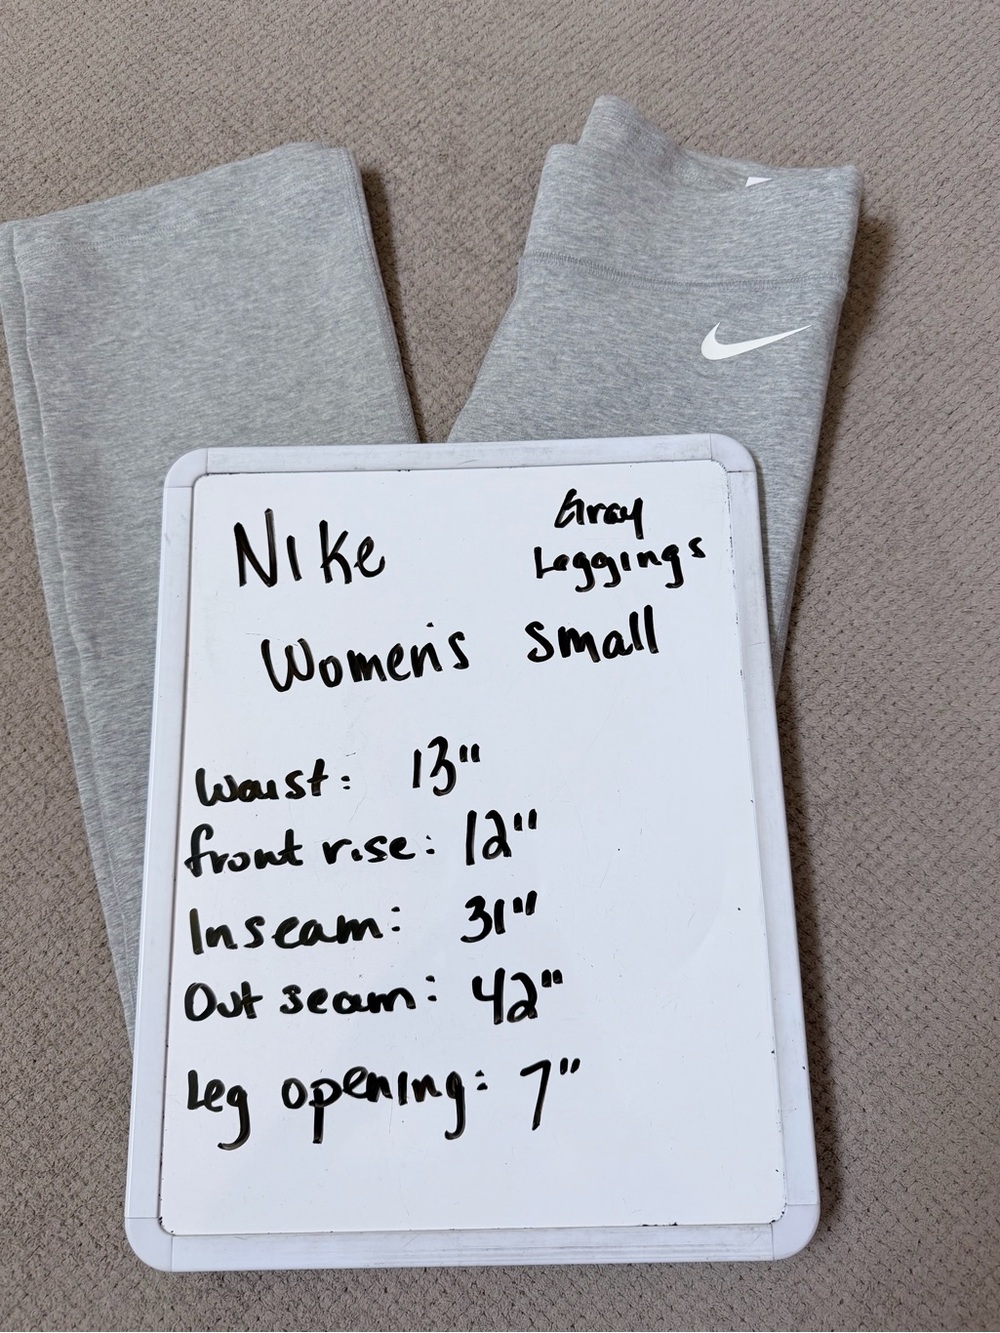 Nike
Gray
Leggings
Women's Small
Waist: 13"
front rise: 12"
Inseam: 31"
Out seam: 42"
Leg opening: 7"